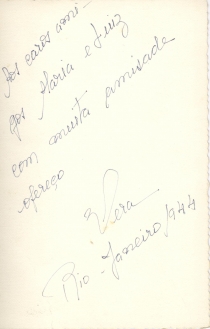 Aos caros ami-
gos Maria e Luiz
com muita amisade
ofereço
Vera
Rio-Janeiro/944